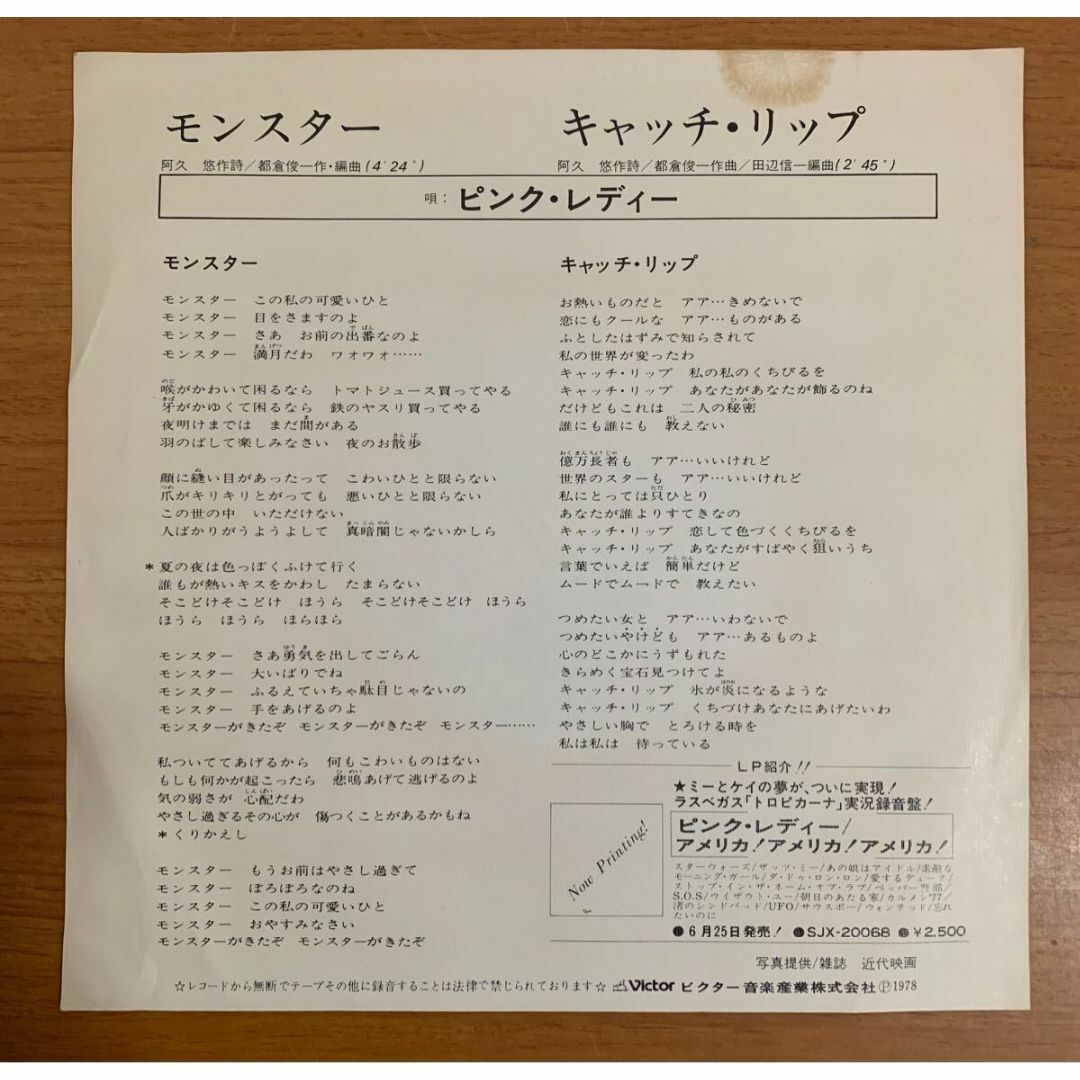 モンスター
阿久 悠作詩/都倉俊一作・編曲(4′24″)
キャッチ・リップ
阿久 悠作詩/都倉俊一作曲/田辺信一編曲(2′45″)
唄: ピンク・レディー
モンスター
モンスター この私の可愛いひと
モンスター 目をさますのよ
モンスター さあ お前の出番なのよ
モンスター 満月だわ ワォワォ……
喉がかわいて困るなら トマトジュース買ってやる
牙がかゆくて困るなら 鉄のヤスリ買ってやる
夜明けまでは まだ間がある
羽のばして楽しみなさい 夜のお散歩
顔に縫い目があったって こわいひとと限らない
爪がキリキリとがっても 悪いひとと限らない
この世の中 いただけない
人ばかりがうようよして 真暗闇じゃないかしら
*夏の夜は色っぽくふけて行く
誰もが熱いキスをかわし たまらない
そこどけそこどけ ほうら そこどけそこどけ ほうら
ほうら ほうら ほらほら
モンスター さあ勇気を出してごらん
モンスター 大いばりでね
モンスター ふるえていちゃ駄目じゃないの
モンスター 手をあげるのよ
モンスターがきたぞ モンスターがきたぞ モンスター……
私ついててあげるから 何もこわいものはない
もしも何かが起こったら 悲鳴あげて逃げるのよ
気の弱さが 心配だわ
やさし過ぎるその心が 傷つくことがあるかもね
*くりかえし
モンスター もうお前はやさし過ぎて
モンスター ぼろぼろなのね
モンスター この私の可愛いひと
モンスター おやすみなさい
モンスターがきたぞ モンスターがきたぞ
キャッチ・リップ
お熱いものだと アア…きめないで
恋にもクールな アア…ものがある
ふとしたはずみで知らされて
私の世界が変ったわ
キャッチ・リップ 私の私のくちびるを
キャッチ・リップ あなたがあなたが飾るのね
だけどもこれは 二人の秘密
誰にも誰にも 教えない
億万長者も アア…いいけれど
世界のスターも アア…いいけれど
私にとっては只ひとり
あなたが誰よりすてきなの
キャッチ・リップ 恋して色づくくちびるを
キャッチ・リップ あなたがすばやく狙いうち
言葉でいえば 簡単だけど
ムードでムードで 教えたい
つめたい女と アア…いわないで
つめたいやけども アア…あるものよ
心のどこかにうずもれた
きらめく宝石見つけてよ
キャッチ・リップ 氷が炎になるような
キャッチ・リップ くちづけあなたにあげたいわ
やさしい胸で とろける時を
私は私は 待っている
LP紹介!!
Now Printing!
★ミーとケイの夢が、ついに実現!
ラスベガス「トロピカーナ」実況録音盤!
ピンク・レディー/
アメリカ!アメリカ!アメリカ!
スターウォーズ/ザッツ・ミー/あの娘はアイドル/素敵な
モーニング・ガール/ダ・ドゥ・ロン・ロン/愛するデューク/
ストップ・イン・ザ・ネーム・オブ・ラブ/ペッパー警部/
S.O.S/ウイザウト・ユー/朝日のあたる家/カルメン'77/
渚のシンドバッド/UFO/サウスポー/ウォンテッド/忘れ
たいのに
●6月25日発売! ●SJX-20068 ●¥2,500
写真提供/雑誌 近代映画
☆レコードから無断でテープその他に録音することは法律で禁じられております☆ Victor ビクター音楽産業株式会社Ⓟ1978